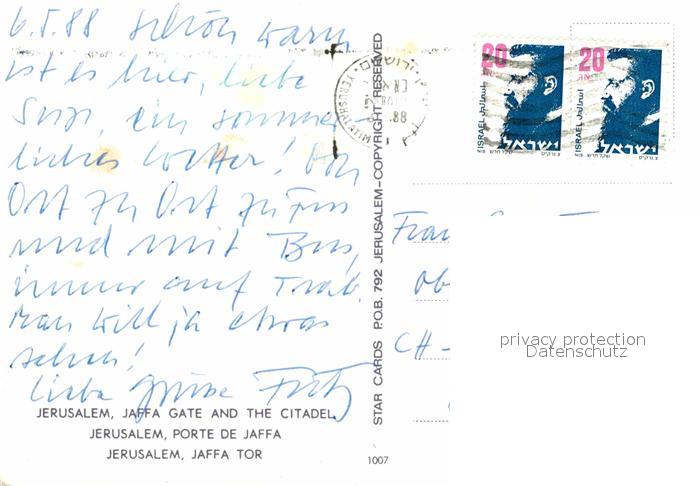 6.5.88 schön warm
ist es hier, liebe
Susi, ein sommer-
liches Wetter! Von
Ort zu Ort zu Fuss
und mit Bus,
immer auf Trab.
Man will ja etwas
sehen!
Liebe Grüsse Fritz
JERUSALEM, JAFFA GATE AND THE CITADEL
JERUSALEM, PORTE DE JAFFA
JERUSALEM, JAFFA TOR
STAR CARDS P.O.B. 792 JERUSALEM-COPYRIGHT RESERVED
1007
20
ISRAEL ישראל
20
ISRAEL ישראל
Frau
CH-
privacy protection
Datenschutz